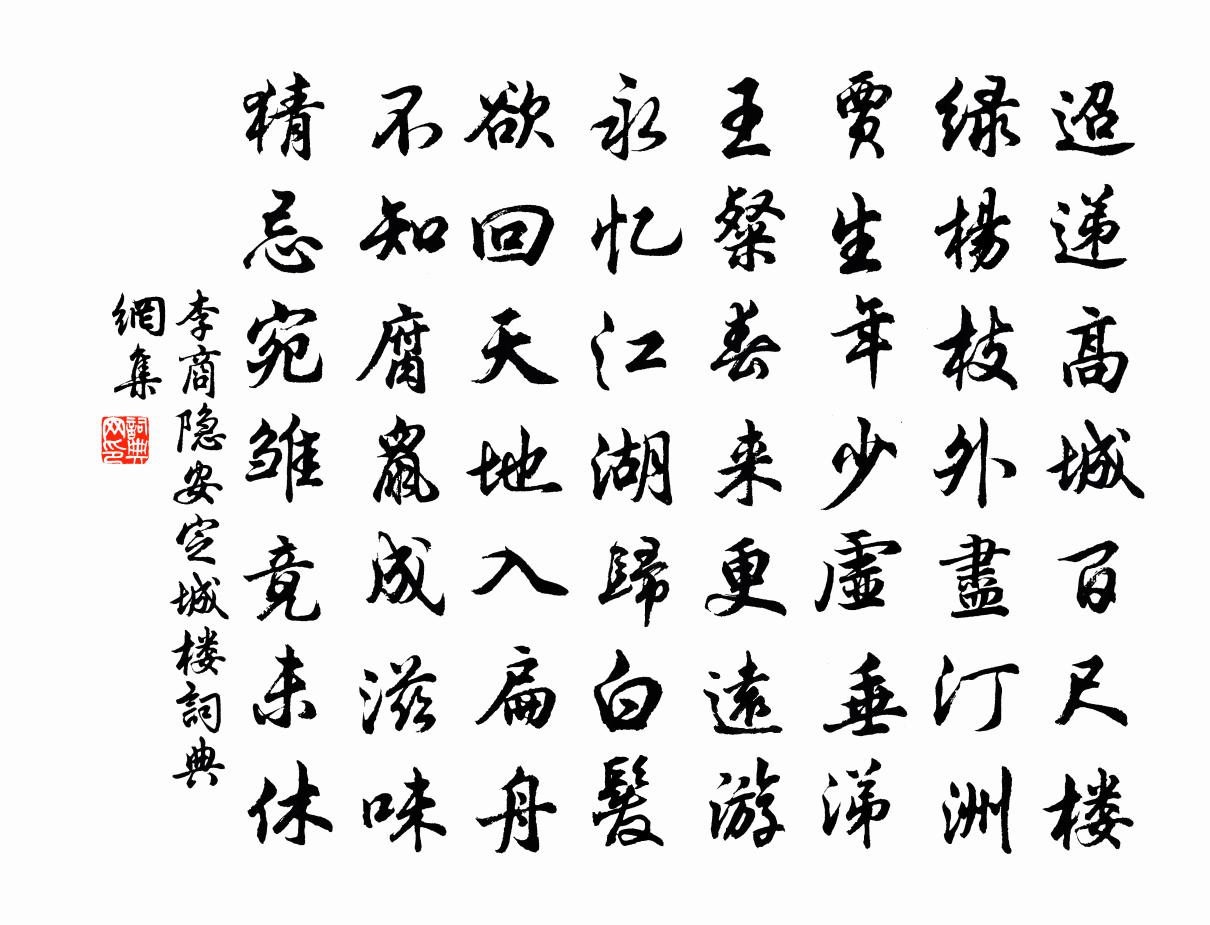 迢递高城百尺楼
绿杨枝外盡汀洲
贾生年少虚垂涕
王粲春来更遠游
永忆江湖歸白髮
欲回天地入扁舟
不知腐鼠成滋味
猜忌宛雏竟未休
李商隐安定城楼詞典
網集
詞典网印